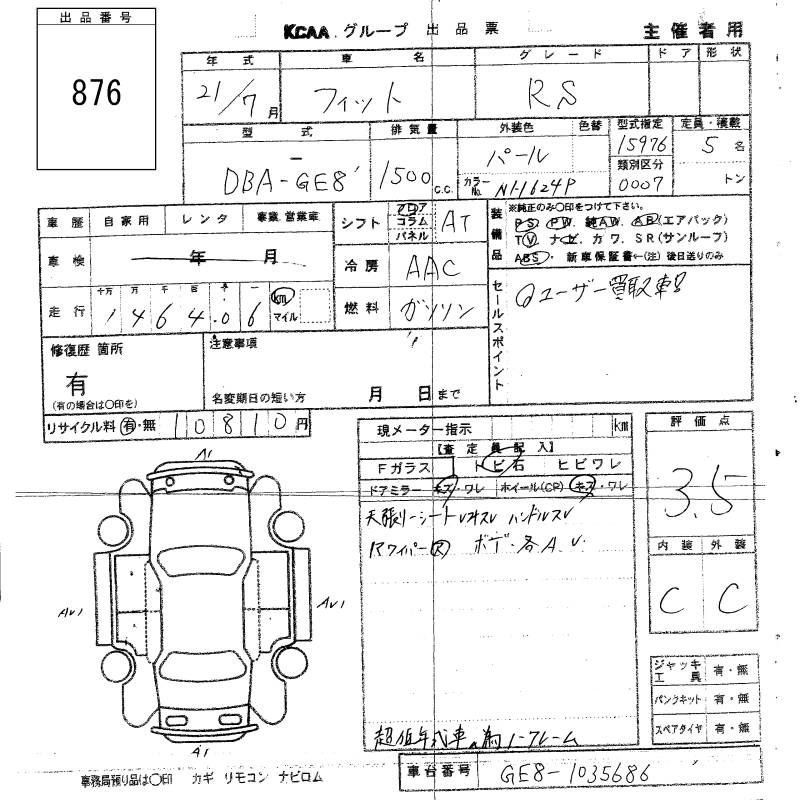 出品番号
876
KCAA グループ 出品票
主催者用
年式 車名 グレード ドア 形状
21/7月 フィット RS
型式 排気量 外装色 色替 型式指定 定員・積載
DBA-GE8 1500 c.c. パール 15976 5名
カラーNo. NH624P 類別区分 0007 トン
車歴 自家用 レンタ 事業 営業車
車検 年 月
走行 十万 万 千 百 十 一
146406 km マイル
シフト フロア コラム パネル AT
冷房 AAC
燃料 ガソリン
装備品 ※純正のみ○印をつけて下さい。
PS. PW. 純AW. AB(エアバッグ)
TV ナビ. カワ. SR(サンルーフ)
ABS・新車保証書←(注)後日送りのみ
セールスポイント
ユーザー買取車
修復歴 箇所
有
(有の場合は○印を)
注意事項
名変期日の短い方 月 日まで
リサイクル料 有・無 10810円
現メーター指示 km
【査定員記入】
Fガラス トビ石 ヒビワレ
ドアミラー キズ・ワレ ホイール(CP) キズ・ワレ
天張り-シート
ハンドルスレ
Rワイパー
ボデー各A.U.
超低年式車
ノークレーム
評価点
3.5
内装 外装
C C
ジャッキ工具 有・無
パンクキット 有・無
スペアタイヤ 有・無
A1
AU1
AU1
A1
事務局預り品は○印 カギ リモコン ナビロム
車台番号 GE8-1035686